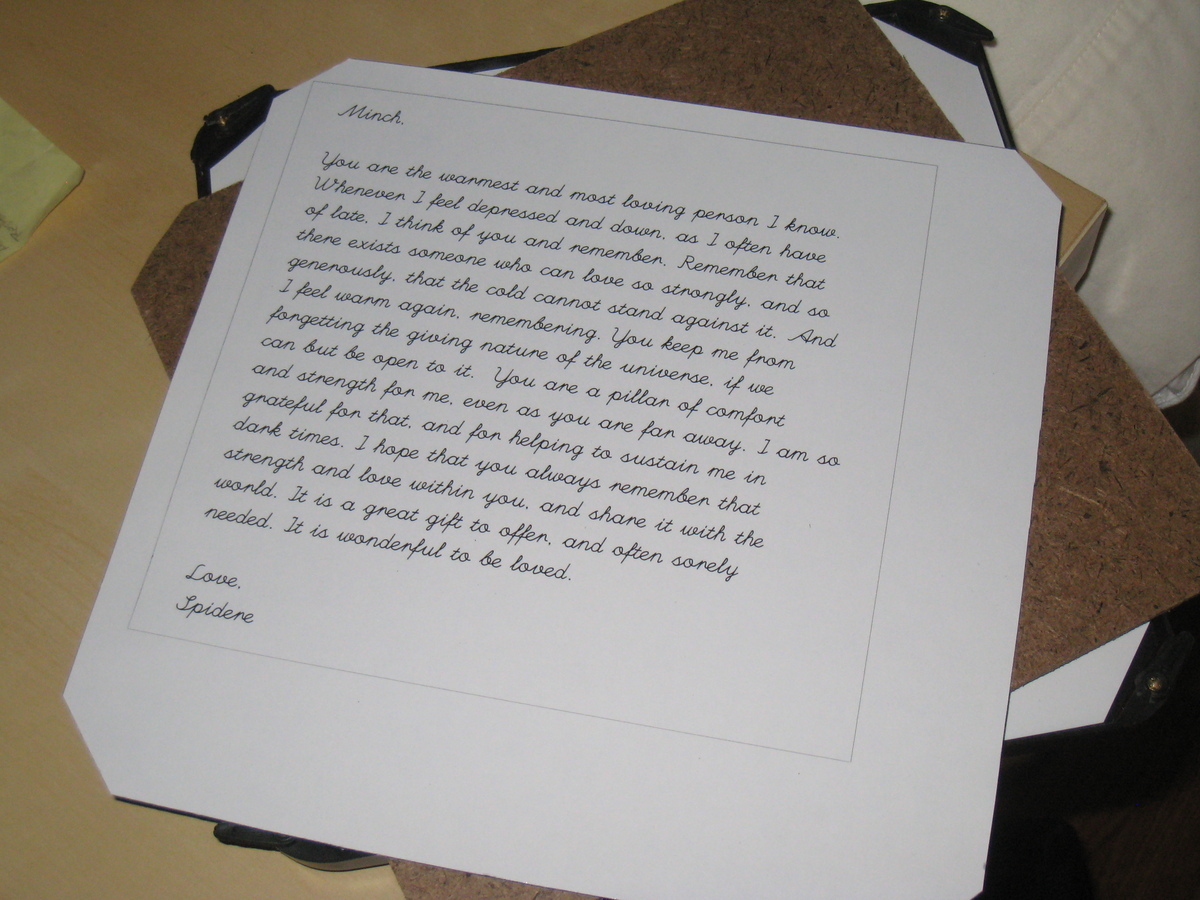 Minch,
You are the warmest and most loving person I know.
Whenever I feel depressed and down, as I often have
of late, I think of you and remember. Remember that
there exists someone who can love so strongly, and so
generously, that the cold cannot stand against it. And
I feel warm again, remembering. You keep me from
forgetting the giving nature of the universe, if we
can but be open to it. You are a pillar of comfort
and strength for me, even as you are far away. I am so
grateful for that, and for helping to sustain me in
dark times. I hope that you always remember that
strength and love within you, and share it with the
world. It is a great gift to offer, and often sorely
needed. It is wonderful to be loved.
Love,
Spidere